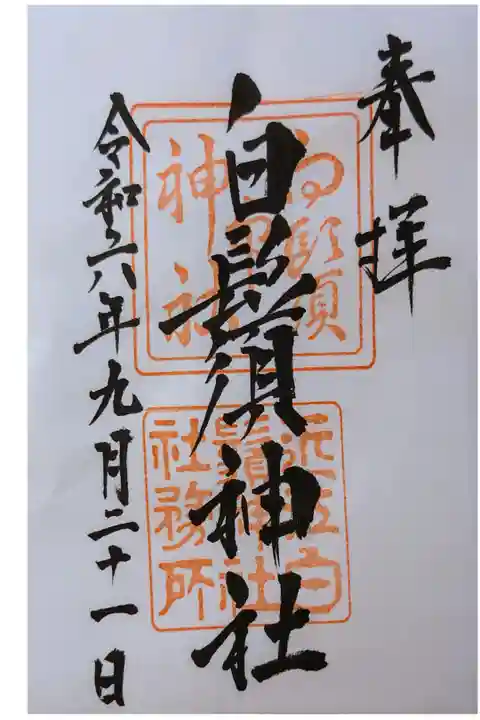 奉拝
白鬚神社
令和六年九月二十一日
近江白
鬚神社
社務所